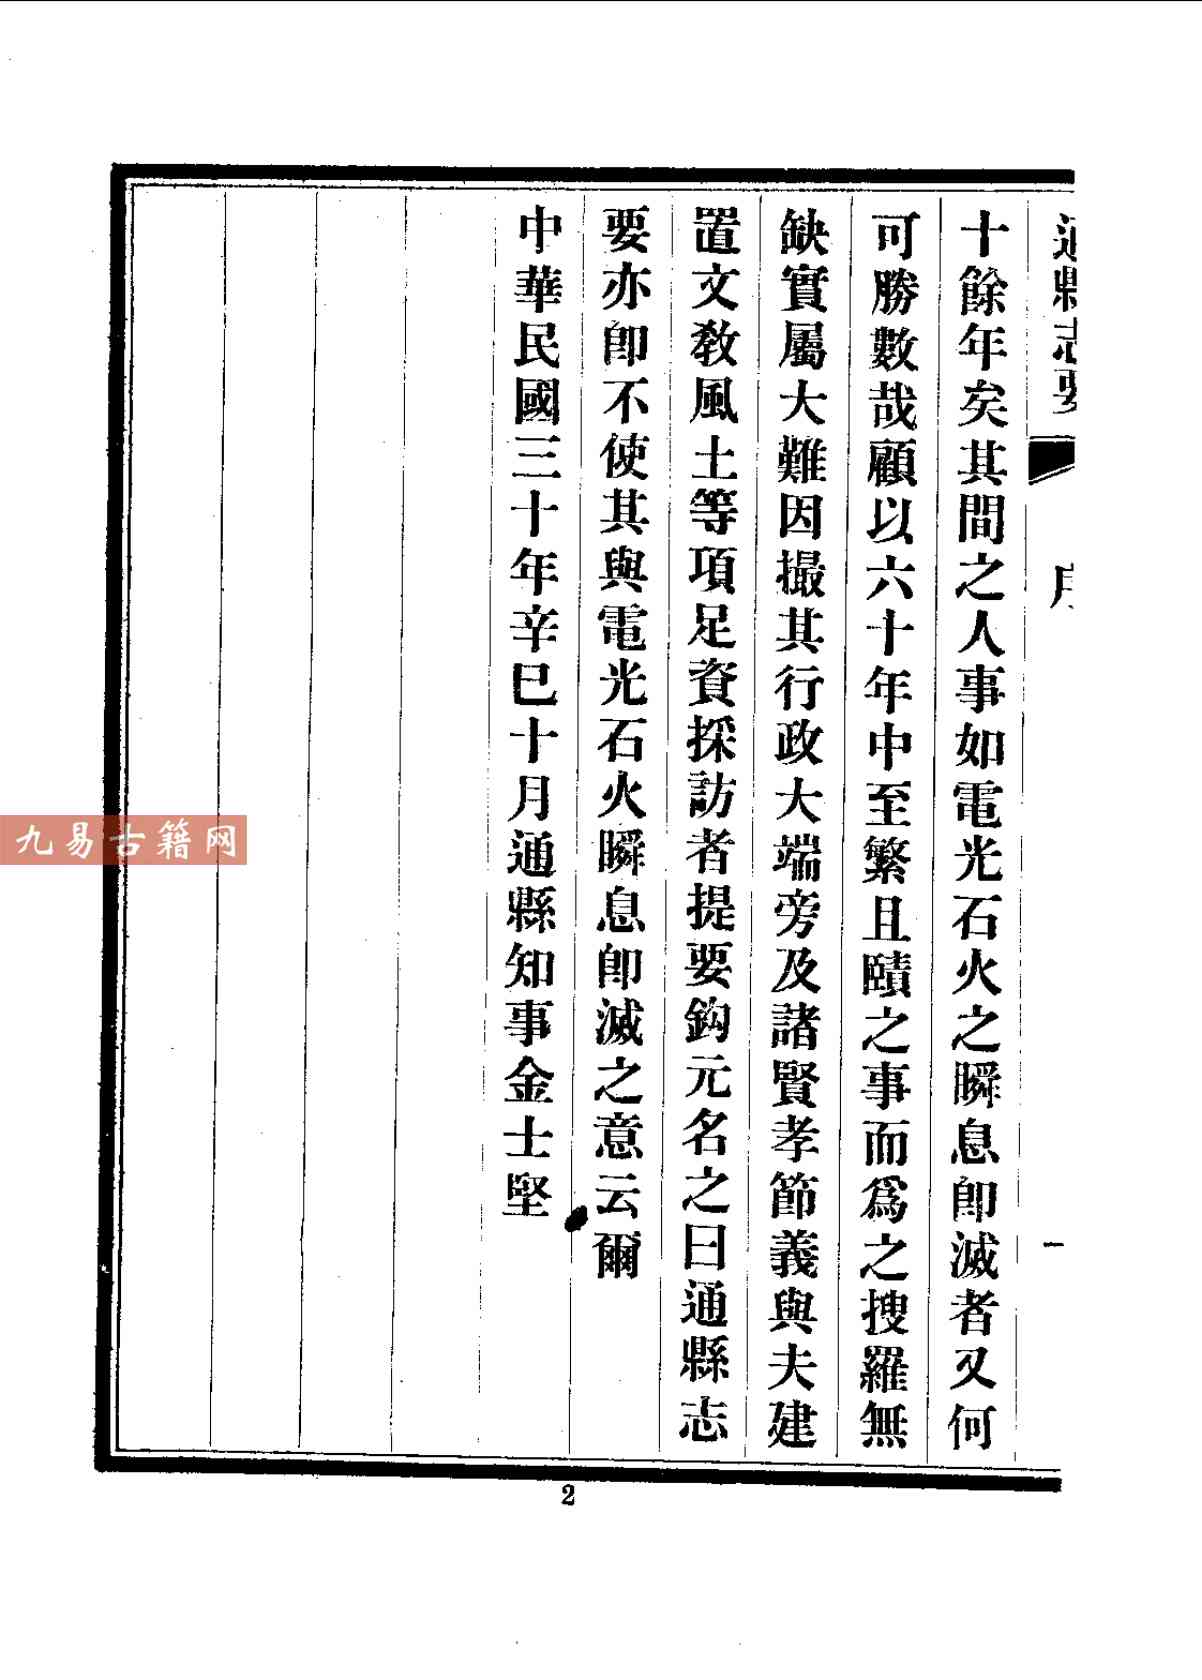 通縣志要 序 一
十餘年矣其間之人事如電光石火之瞬息卽滅者又何
可勝數哉顧以六十年中至繁且賾之事而爲之搜羅無
缺實屬大難因撮其行政大端旁及諸賢孝節義與夫建
置文敎風土等項足資採訪者提要鈎元名之曰通縣志
要亦卽不使其與電光石火瞬息卽滅之意云爾
中華民國三十年辛巳十月通縣知事金士堅
九易古籍网
2